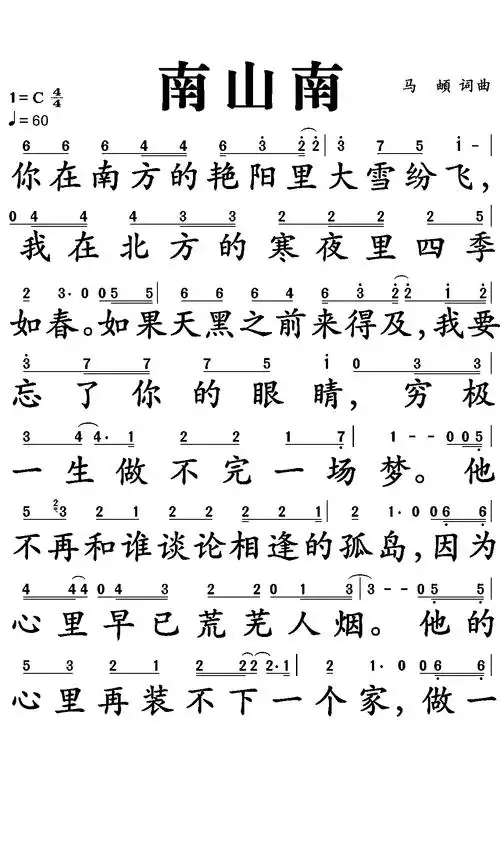 南山南
1=C 4/4
马頔 词曲
♩=60
6 6 6 4 4 6 3 2 2 | 3 7 5 i - |
你在南方的艳阳里大雪纷飞,
0 4 4 4 3 3 2 2 2 2 5 |
我在北方的寒夜里四季
2 3· 0 0 5 5 | 6 6 6 4 6 3 2 2 i 2 |
如春。如果天黑之前来得及,我要
3 7 7 7 5 i 0 3 3 |
忘了你的眼睛,穷极
3 4 4· 1 2 2 1 7 | 1 - - 0 0 5 |
一生做不完一场梦。他
5 2 3 2 1 2 2 2 2 1 | 2 1· 0 0 6 6 |
不再和谁谈论相逢的孤岛,因为
4 4 4 0 4 3 2 2 0 1 3 | 3 - - 0 5 5 |
心里早已荒芜人烟。他的
5 3 2 1 2 2 2 2· 1 | 2 1· 0 0 6 6 |
心里再装不下一个家,做一